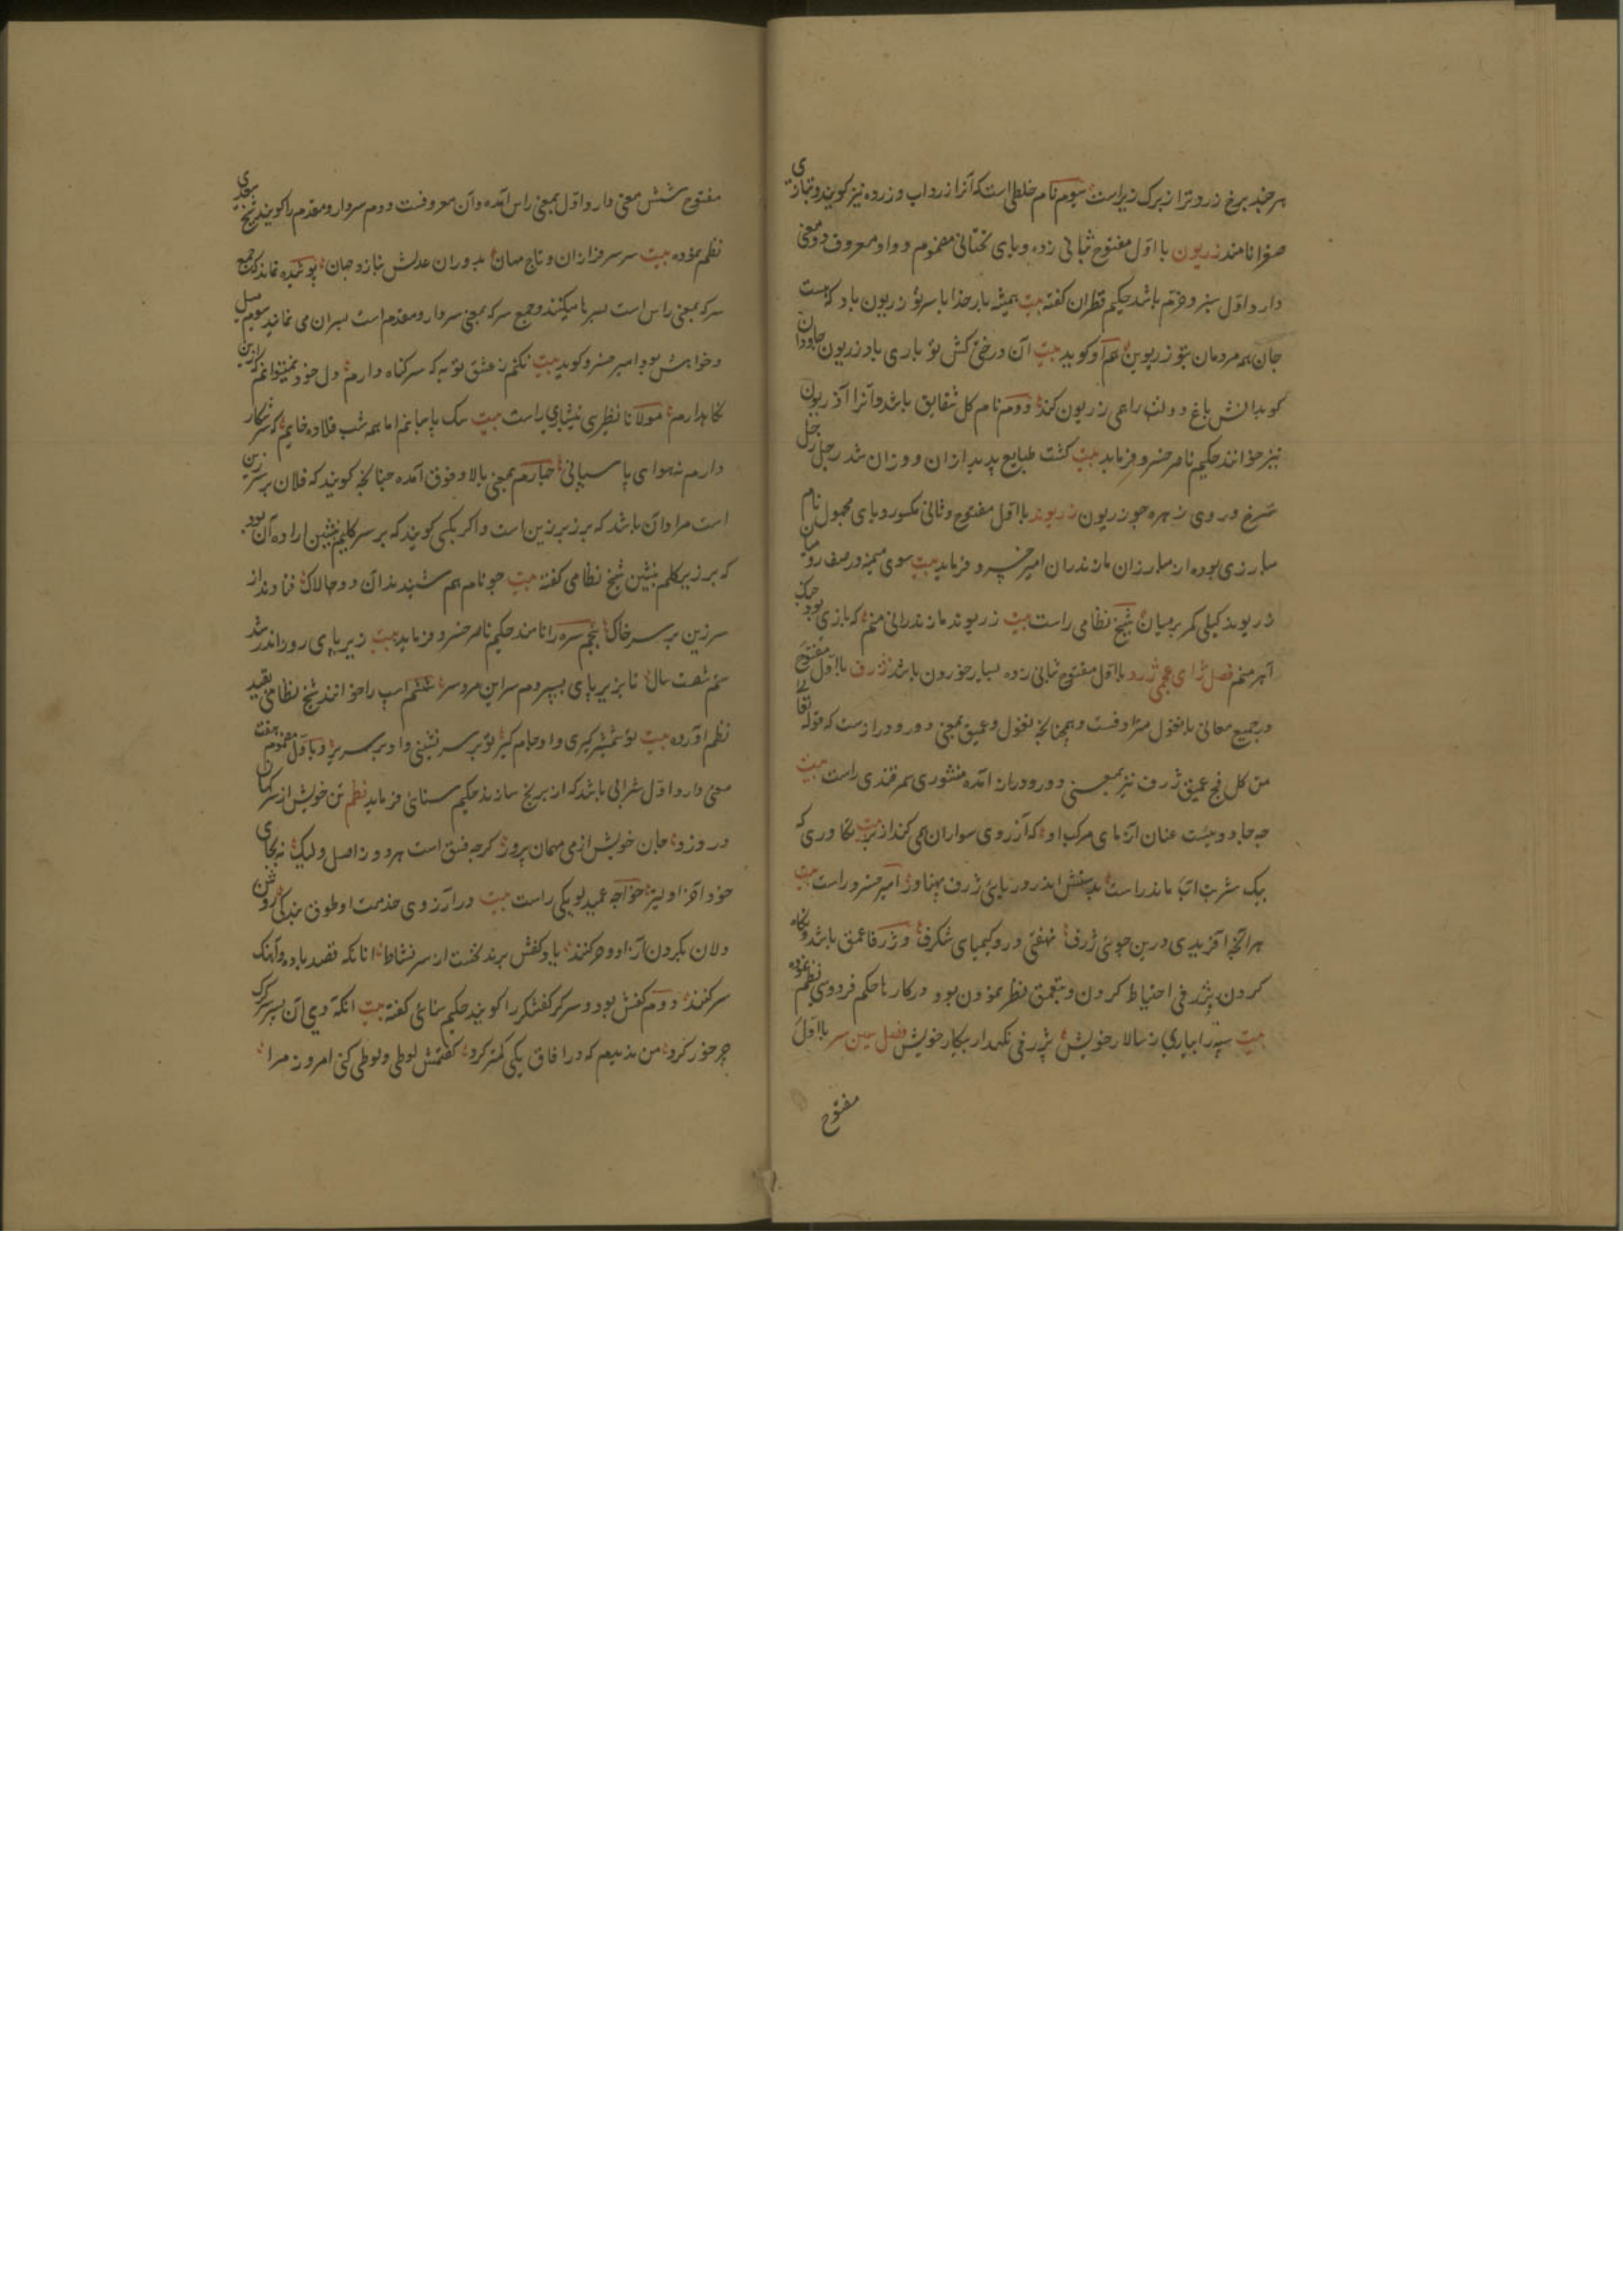 هر چند برخ زرو ترا ز برک زیراست سوم نام خلطی است که آنرا زرداب و زرده نیز کویند و بتازی
صفرا نامند زریون با اول مفتوح بثانی زده و یای تحتانی مضموم و واو معروف دو معنی
دارد اول سبز و خرم باشد حکیم قطران کفته بیت همیشه بار خدایا سر تو زریون باد که هست
جان همه مردمان بتو زریون هم او کوید بیت آن درختی کش تو باری باد زریون جاودان
کو بدانش باغ دولت را همی زریون کند دوم نام کل شقایق باشد و آنرا آذریون
نیز خوانند حکیم ناصر خسرو فرماید بیت کشت طبایع پدید ازان و وزان شد رجل زحل
سرخ و روی زهره چو زریون زریوند با اول مفتوح و ثانی مکسور و یای مجهول نام
مبارزی بوده از مبارزان مازندران امیر خسرو فرماید بیت سوی میمنه در صف رومیان
زریوند کیلی کمر بر میان شیخ نظامی راست بیت زریوند مازندرانی منم که بازی بود جنک
آهرمنم فصل زای عجمی ژرد با اول مفتوح بثانی زده بسیار خورون باشد ژرف با اول مفتوح
در جمیع معانی با نغول مترادفست و همچنانچه نغول و عمیق بمعنی دور و درازست که قوله تعالی
من کل فج عمیق ژرف نیز بمعنی دور و دراز آمده منثوری سمرقندی راست بیت
چه جادوییست عنان آزمای مرکب او که آز روی سواران همی کند از بیت تکاوری که
بیک شربت آب ماندراست بدستش اندر دریای ژرف پهناور امیر خسرو راست بیت
هر آنچه آفریدی درین جوی ژرف نهفتی درو کیمیای شکرف و ژرفا عمق باشد و نکاه
کردن بژرفی احتیاط کردن و بتعمق نظر نمودن بود در کارها حکیم فردوسی نظم نموده
بیت سپه را بیاری ز سالار خویش بژرفی نکهدار بیکار خویش فصل سین سر با اول
مفتوح
مفتوح شش معنی دارد اول بمعنی راس آمده و آن معروفست دوم سردار و مقدم را کویند شیخ سعدی
نظم نموده بیت سر سرفرازان و تاج مهان بدوران عدلش بنازد جهان پوشیده نماند که جمع
سر که بمعنی راس است سرها میکنند و جمع سر که بمعنی سردار و مقدم است سران می نمایند سوم میل
و خواهش بود امیر خسرو کوید بیت نکنم ز عشق توبه که سر کناه دارم دل خود نمیتوانم که ازین
نکاهدارم مولانا نظیری نیشابوری راست بیت سک پاسبانم اما همه شب قلاده خایم که سر شکار
دارم نه هوای پاسبانی چهارم بمعنی بالا و فوق آمده چنانچه کویند که فلان بر سر زین
است مراد آن باشد که بر زبر زین است و اکر بکسی کویند که بر سر کلیم بنشین اراده آن بود
که بر زبر کلیم بنشین شیخ نظامی کفته بیت چو نام هم شنیدند آن دو چالاک فتادند از
سر زین بر سر خاک پنجم سره را نامند حکیم ناصر خسرو فرماید بیت زیر پای روز اندر شد
سرم شصت سال تا بزیر پای بسپردم سر این مردسر ششم اسپ را خوانند شیخ نظامی بقید
نظم آورده بیت تو شمشیر کیری و او جام کیر تو بر سر نشینی و او بر سریر و با اول مضموم هفت
معنی دارد اول شرابی باشد که از برنج سازند حکیم سنائی فرماید نظم تن خویش از سر کسان
در دوزد جان خویش از می مهمان پروز کرچه فسق است هر دو زاصل ولیک نه بجای
خود آخر اولیتر خواجه عمید لویکی راست بیت در آرزوی خدمت او طوق بندکی روشن
دلان بکردن آزاد و حر کنند یاد کفش برند نخست از سر نشاط آنانکه قصد باده و آهنک
سر کنند دوم کفش بود و سرکر کفشکر را کویند حکیم سنائی کفته بیت انکه دی آن پسر سرکرک
چر خور کرد من ندیدم که در آفاق یکی کمتر کرد کفتمش لوطی و لوطی کنی امروز مرا